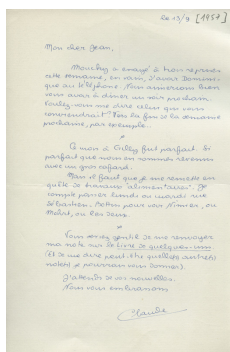 Le 13/9 [1957]
Mon cher Jean,
Mouchy a essayé à trois reprises
cette semaine, en vain, d'avoir
que au téléphone. Nous aimerions bien
vous avoir à dîner un soir prochain.
Voulez-vous me dire celui qui vous
conviendrait? Vers la fin de la semaine
prochaine, par exemple.
*
Ce mois à fut parfait. Si
parfait que nous en sommes revenus
avec un gros cafard.
Mais il faut que je me remette en
quête de travaux "alimentaires". Je
compte passer lundi ou mardi rue
Sébastien Bottin pour voir Nimier, ou
ou les deux.
*
Vous seriez gentil de me renvoyer
ma note sur Le Livre de quelques-uns.
(Et de me dire peut-être quelle(s) autre(s)
note(s) je pourrais vous donner).
J'attends de vos nouvelles.
Nous vous embrassons
Claude